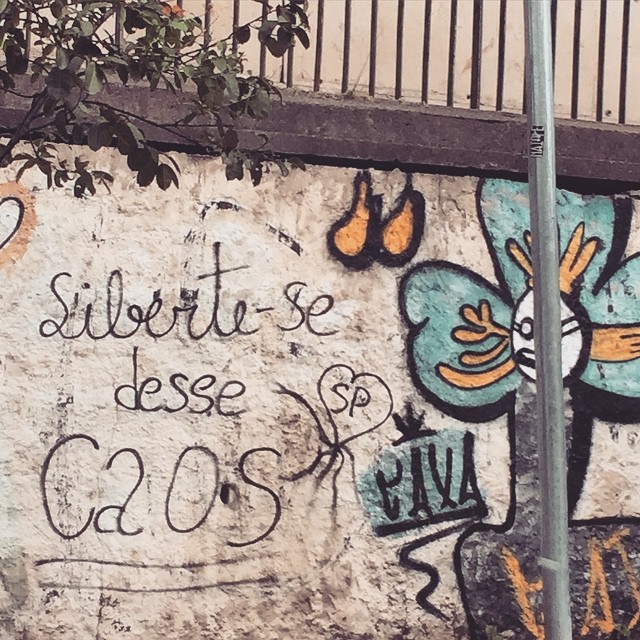 Liberte-se
desse
CaOS
SP
CAVA